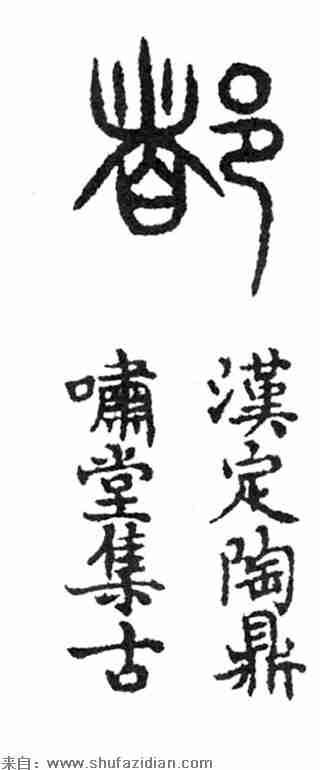 都
漢定陶鼎
嘯堂集古
来自：www.shufazidian.com